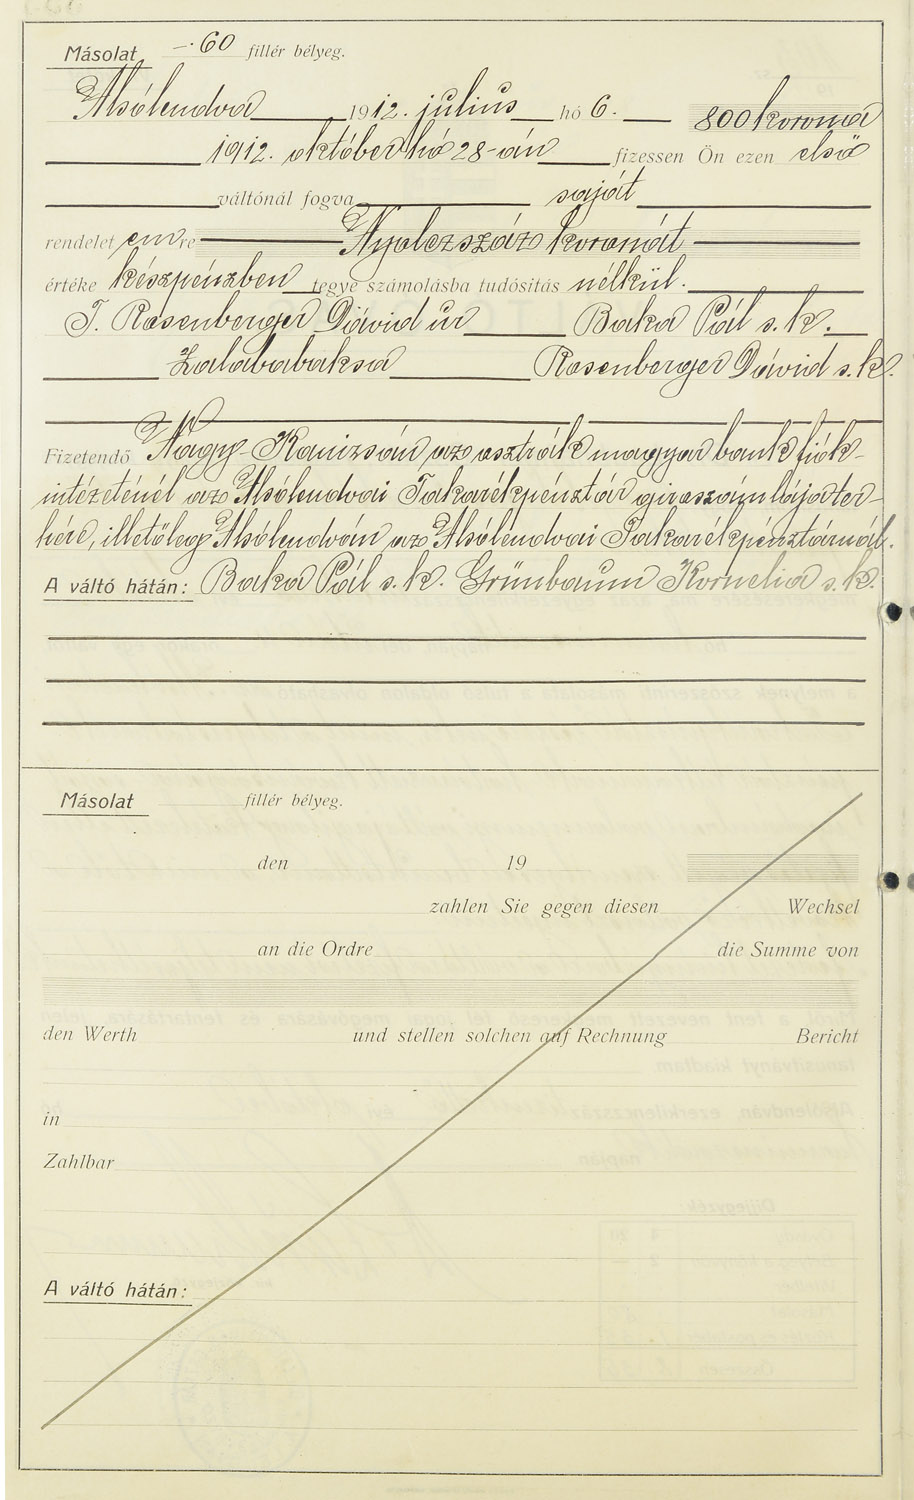 Másolat –·60 fillér bélyeg.
Alsólendva 1912. július hó 6. 800 korona
1912. október hó 28-án fizessen Ön ezen első
váltónál fogva saját
rendelet em re Nyolczszáz koronát
értéke készpénzben tegye számolásba tudósitás nélkül.
T. Rosenberger Dávid úr Baka Pál s. k.
Zalabaksa Rosenberger Dávid s. k.
Fizetendő Nagy-Kanizsán az osztrák magyar bank fiók-
intézeténél az Alsólendvai Takarékpénztár giroszámlája ter-
hére, illetőleg Alsólendván az Alsólendvai Takarékpénztárnál.
A váltó hátán: Baka Pál s. k. Grünbaum Kornelia s. k.
Másolat fillér bélyeg.
den 19
zahlen Sie gegen diesen Wechsel
an die Ordre die Summe von
den Werth und stellen solchen auf Rechnung Bericht
in
Zahlbar
A váltó hátán: